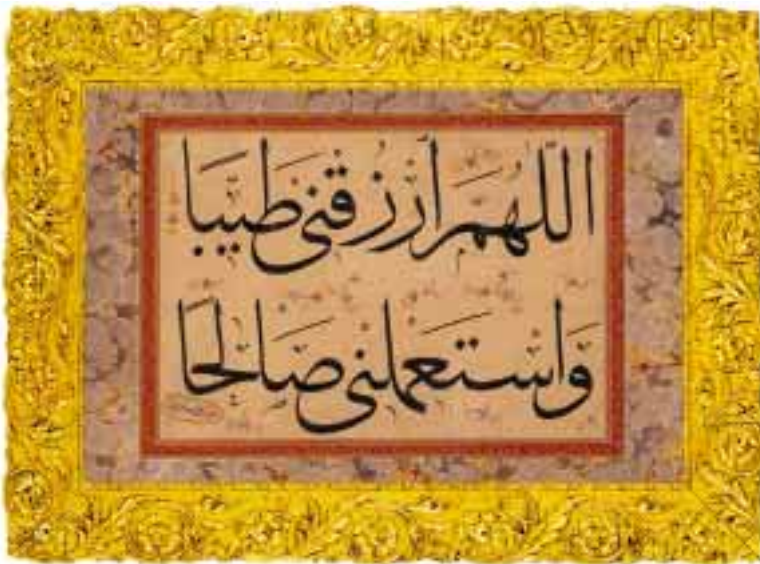 اللّهمّ ارزقنى طيّبا
واستعملنى صالحا